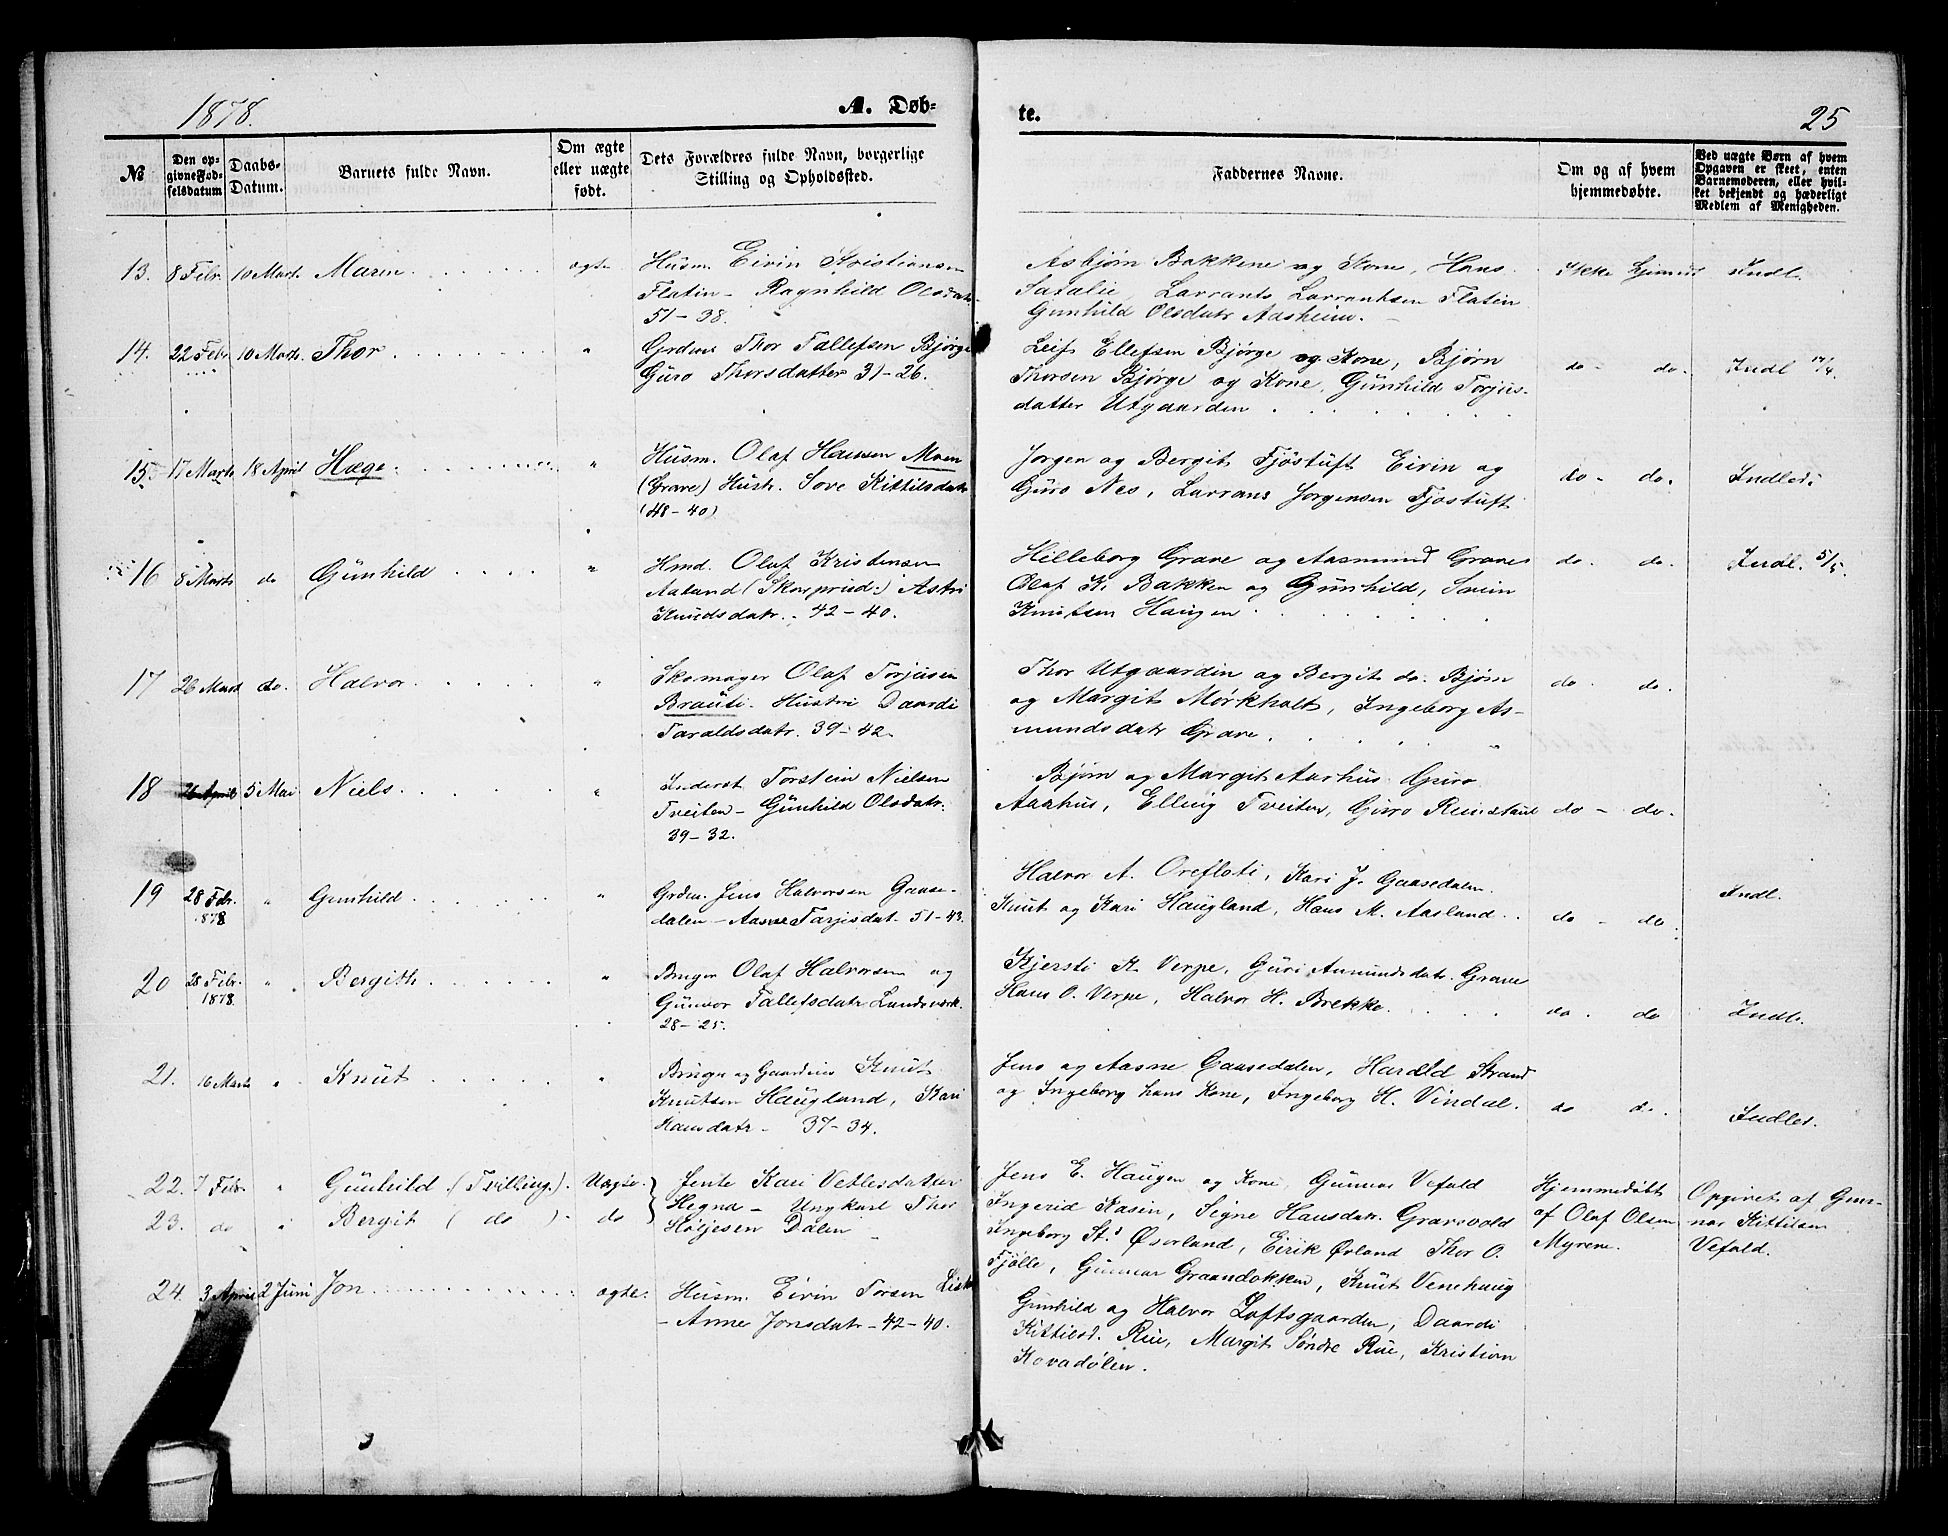 1878.
A. Døb-
te.
25
№
Den op-
givne Fød-
selsdatum
Daabs-
Datum.
Barnets fulde Navn.
Om ægte
eller uægte
født.
Dets Forældres fulde Navn, borgerlige
Stilling og Opholdssted.
Faddernes Navne.
Om og af hvem
hjemmedøbte.
Ved uægte Børn af hvem
Opgaven er skeet, enten
Barnemoderen, eller hvil-
ket bekjendt og hæderligt
Medlem af Menigheden.
13. 8 Febr. 10 Marts. Maren ægte Husm. Eivin Kristiansen
Flatin - Ragnhild Olsdatr.
51-38.
Asbjørn Bakkene og Kone, Hans
Satalie, Lavrants Lavrantsen Flatin
Gunhild Olsdatr Aasheim.
Ikke hjemd Indl.
14. 22 Febr. 10 Marts. Thor " Grdm. Thor Tallefsen Bjørge
Guro Thorsdatter 31-26.
Leif Ellefsen Bjørge og Kone, Bjørn
Thorsen Bjørge og Kone, Gunhild Torjus-
datter Utgaarden
do - do. Indl 17/4.
15. 17 Marts 18 April Hæge. " Husm. Olaf Hansen Moen
(Grave) Hustr. Sove Kittilsdatr
(48-40)
Jørgen og Bergit Fjøstuft Eivin og
Guro Nes, Lavrans Jorgensen Fjostuft
do - do. Indled.
16 8 Marts do Gunhild " Hmd. Olaf Kristensen
Aaland (Skorprud.) Astri
Knudsdatr. 42-40.
Hilleborg Grave og Aasmund Graves
Olaf K. Bakken og Gunhild, Svein
Knutsen Haugen
do. do. Indl. 5/5.
17 26 Marts do. Halvor. " Skomager Olaf Torjusen
Brauti. Hustru Daardi
Taraldsdatr. 39-42.
Thor Utgaardin og Bergit do. Bjørn
og Margit Mørkholt, Ingeborg As-
mundsdatr Grave.
do. do.
18 26 April 5 Mai Niels. " Inderst Torstein Nielsen
Tveiten - Gunhild Olsdatr.
39-32.
Bjørn og Margit Aarhus. Guro
Aarhus, Elling Tveiten, Guro
do - do.
19 28 Febr. " Gunhild " Grdm. Jens Halvorsen Gaase-
1878
dalen - Aasne Tarjisdat. 51-43.
Halvor A. Orefloti, Kari J. Gaasedalen.
Knut og Kari Haugland, Hans M. Aasland.
do - do. Indl.
20 28 Febr. " Bergith " Bruger Olaf Halvorsen og
1878.
Gunvor Tallefsdatr Landsverk.
28-25.
Kjersti K. Verpe, Guri Aamundsdatr. Grave
Hans O. Verpe, Halvor H. Brekke.
do. do Indl.
21. 16 Marts " Knut " Bruger og Gaardeier Knut
Knutsen Haugland, Kari
Hansdatr - 37-34.
Jens og Aasne Gaasedalen, Harald Strand
og Ingeborg hans Kone, Ingeborg H. Vindal.
do do. Indled.
22. 7 Febr. " Gunhild (Tvilling.) Uægte. Jente Kari Vetlesdatter
23. do " Bergit (do) do Hegna - Ungkarl Thor
Høljesen Dalen
Jens E. Haugen og Kone, Gunnar Vefald
Ingerid Aasen, Signe Hansdatr. Gransvold
Ingeborg St.d Øverland, Eirik Øvland Thor O.
Fjølle, Gunnar Graandokken, Knut Venehaug
Hjemmedøbt
af Olaf Olsen
Myrene.
Opgivet af Gun-
nar Kittilsen
Vefald.
24. 3 April 2 Juni Jon ægte. Husm. Eivin Torsen
- Anne Jonsdatr - 42-40.
Gunhild og Halvor Loftsgaarden, Daardi
Kittilsd. Rue, Margit Søndre Rue, Kristian
Kovadølen.